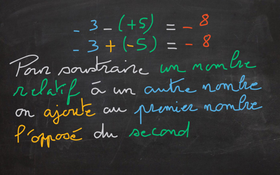 - 3 - (+5) = - 8
- 3 + (-5) = - 8
Pour soustraire un nombre
relatif à un autre nombre
on ajoute au premier nombre
l'opposé du second